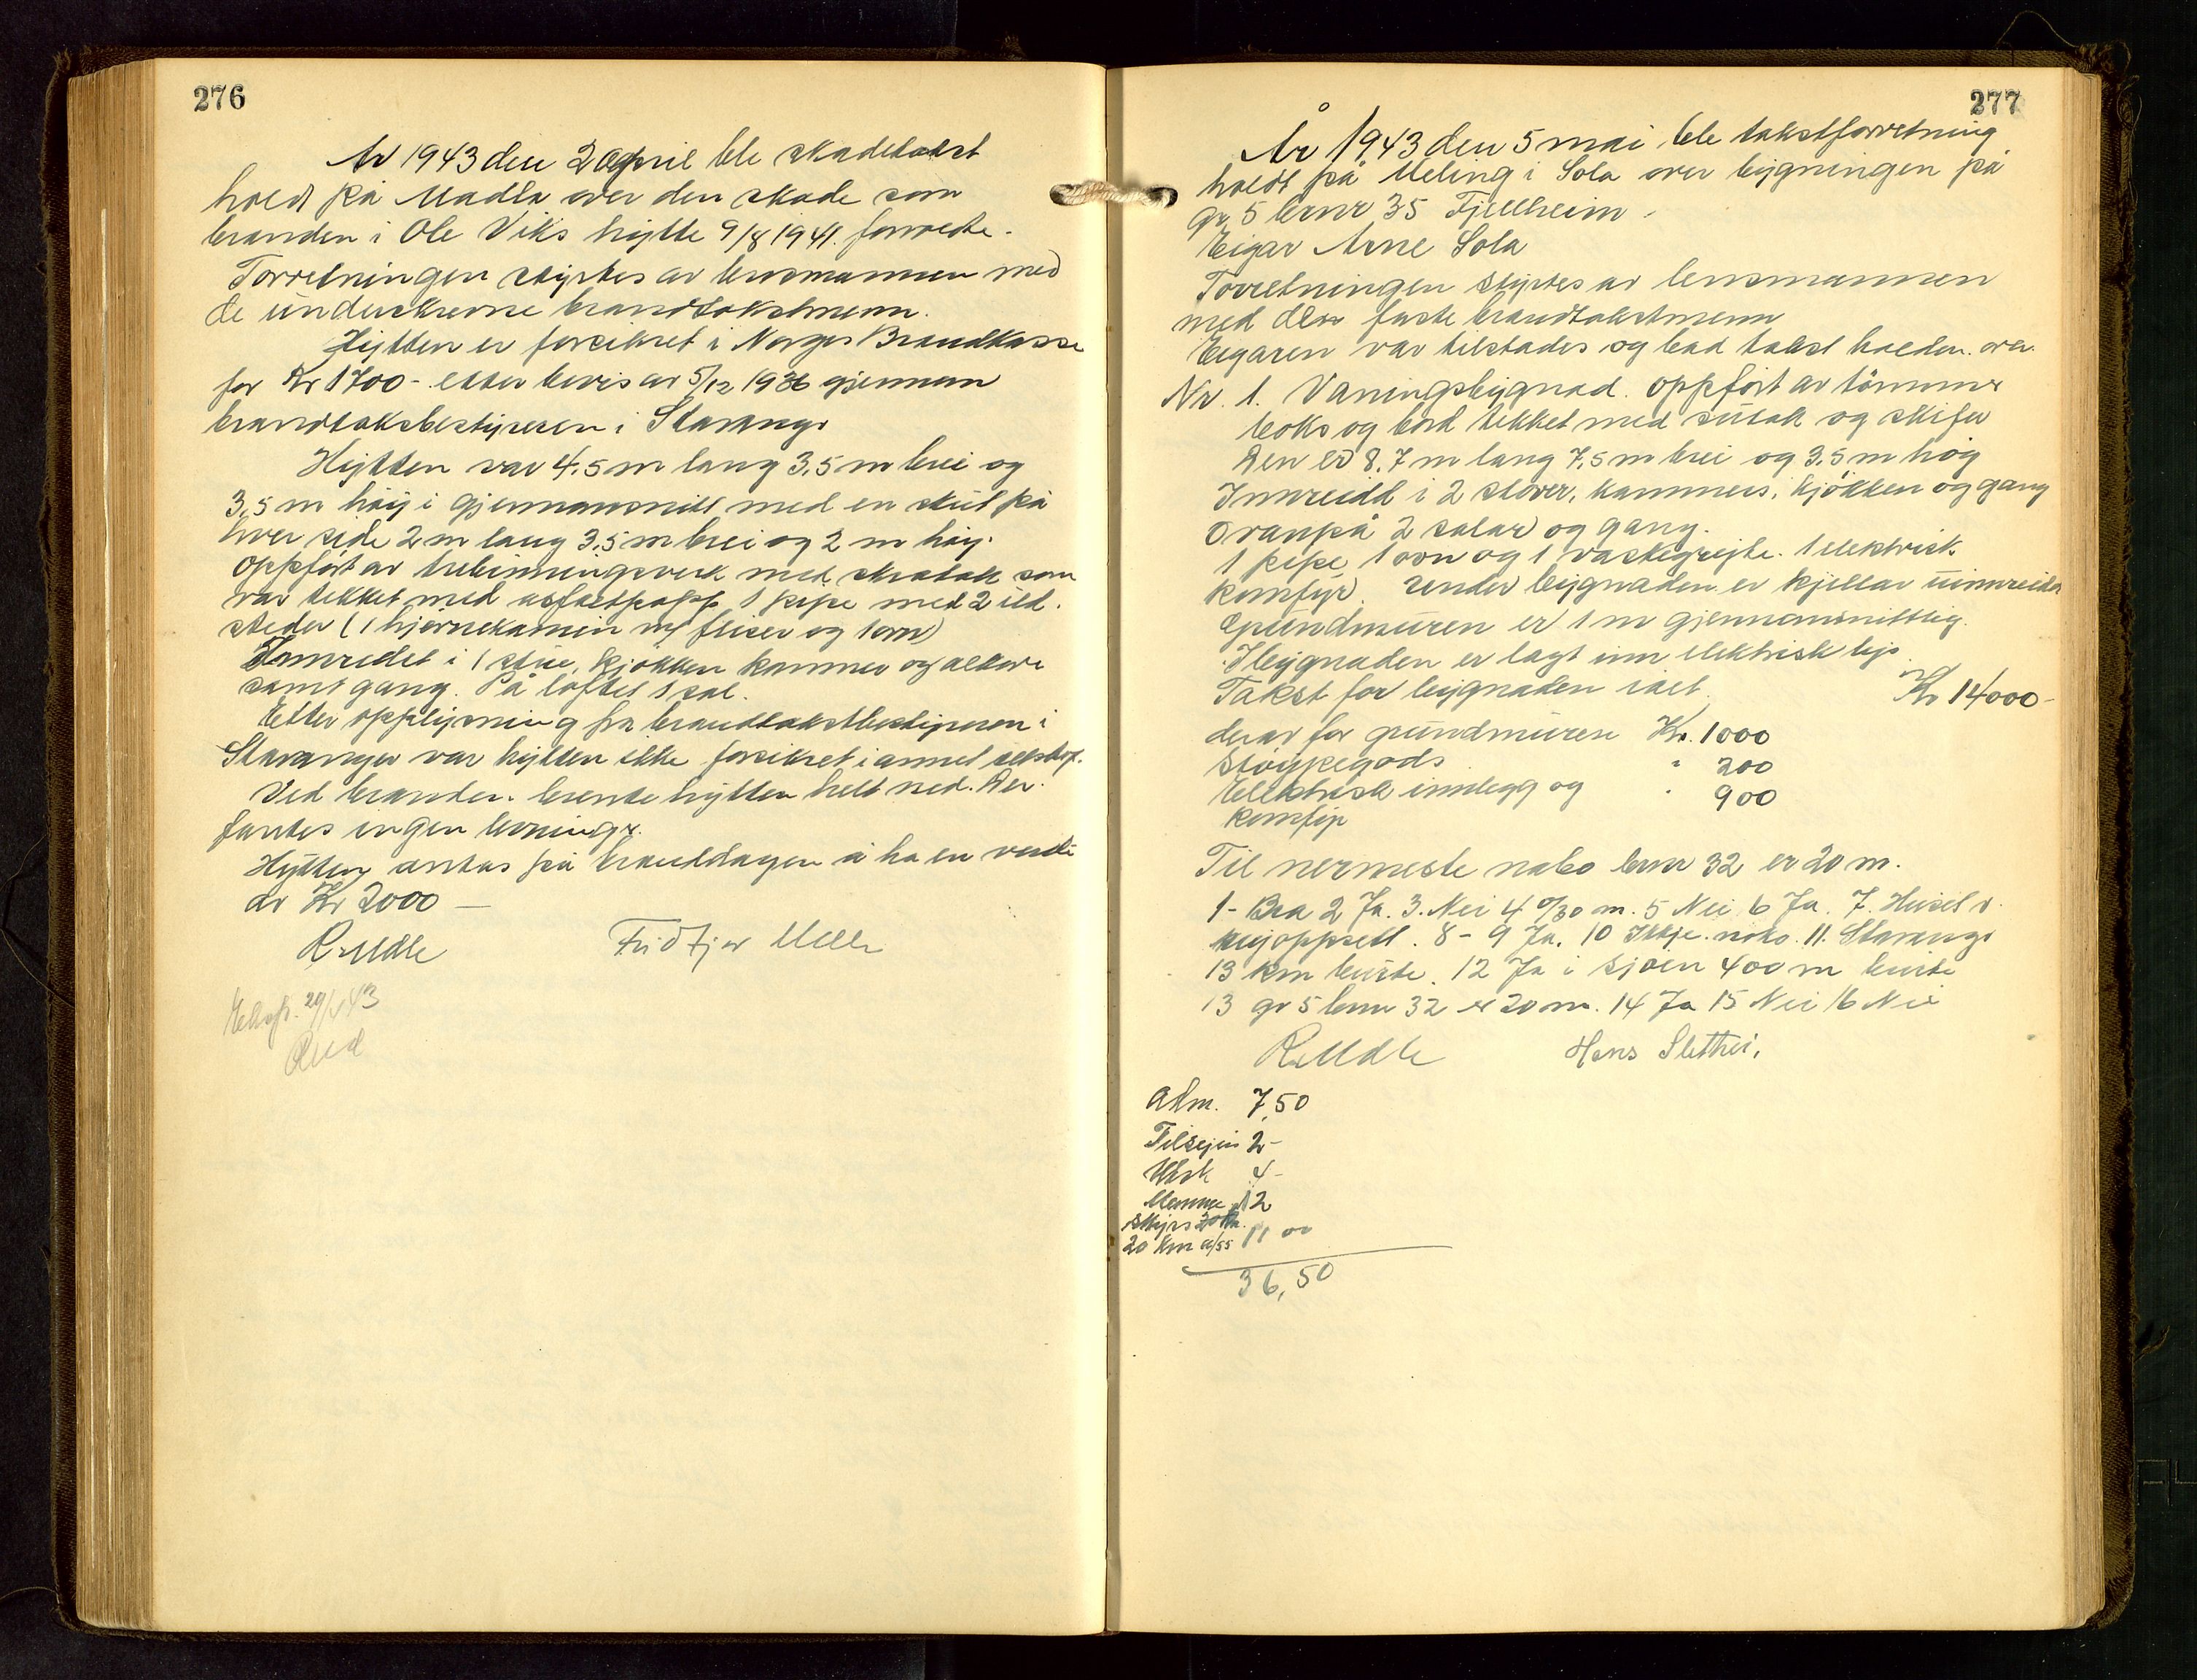 276
År 1943 den 2 april ble skadetakst
holdt på Madla over den skade som
branden i Ole Viks hytte 9/8 1941. forvoldte.
Forretningen styrtes av lensmannen med
de underskrevne brandtakstmenn.
Hytten er forsikret i Norges Brandkasse
for Kr 1700- etter bevis av 5/12 1936 gjennem
brandtakstbestyreren i Stavanger
Hytten var 4.5 m lang 3.5 m brei og
3.5 m høy i gjennomsnitt med en skut på
hver side 2 m lang 3.5 m brei og 2 m høy.
Oppført av trebinningsverk med skratak som
var tekket med asfaltpapp 1 pipe med 2 ild.
steder (1 hjørnekamin m/ fliser og 1 ovn)
Innredet i 1 stue, kjøkken kammer og alkove
samt gang. På loftet 1 sal.
Etter opplysning fra brandtakstbestyreren i
Stavanger var hytten ikke forsikret i annet selskap.
Ved branden brente hytten helt ned. Der
fantes ingen levninger.
Hytten antas på branddagen å ha en verdi
av Kr 2000 —
R. Udle Fridtjov Melle
Eksp. 29/ 43
277
År 1943 den 5 mai ble takstforretning
holdt på Meling i Sola over bygningen på
gr. 5 bruk 35 Fjellheim.
Eigar Arne Sola
Forretningen styrtes av lensmannen
med dei faste brandtakstmenn
Eigaren var tilstades og bad takst holden over
Nr. 1. Våningsbygnad. oppført av tømmer
boks og bord tekket med sutak og skifer
Den er 8.7 m lang 7.5 m brei og 3.5 m høg
Innreidd i 2 stover, kammers, kjøkken og gang
Ovanpå 2 salar og gang.
1 pipe 1 ovn og 1 vaskegryte. 1 elektrisk
komfyr. Under bygnaden er kjellar uinnreidd
Grundmuren er 1 m gjennomsnittlig.
I bygnaden er lagt inn elektrisk lys
Takst for bygnaden ialt Kr 14000-
derav for grundmuren Kr. 1000
Støypegods " 200
Elektrisk innlegg og " 900
komfyr
Til nermeste nabo bruk 32 er 20 m.
1- Bra 2 Ja. 3. Nei 4 0/30 m. 5 Nei 6 Ja. 7. Huset v.
oppsett. 8 - 9 Ja. 10 Ikkje noko. 11. Stavanger
13 km burte. 12 Ja i sjøen 400 m burte
13 gr 5 bruk 32 er 20 m. 14 Ja 15 Nei 16 Nei
R. Udle Hans Slettei,
Adm. 7,50
Tilsejn 2-
Utsk 4-
Menne 12
Skyss
20 km a/55 11 00
36,50